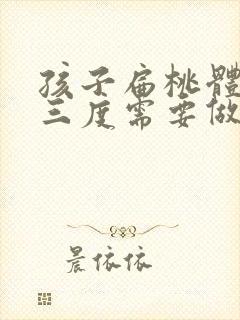 孩子扁桃體
三度需要做
晨依依